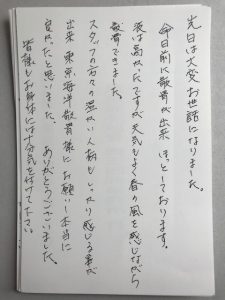 先日は大変お世話になりました。
命日前に散骨が出来 ほっとしております。
波は高かったですが天気もよく春の風を感じながら
散骨できました。
スタッフの方々の温かい人柄もしっかり感じる事が
出来 東京海洋散骨様にお願いし本当に
良かったと思いました。 ありがとうございました。
皆様もお身体には十分気を付けて下さい。